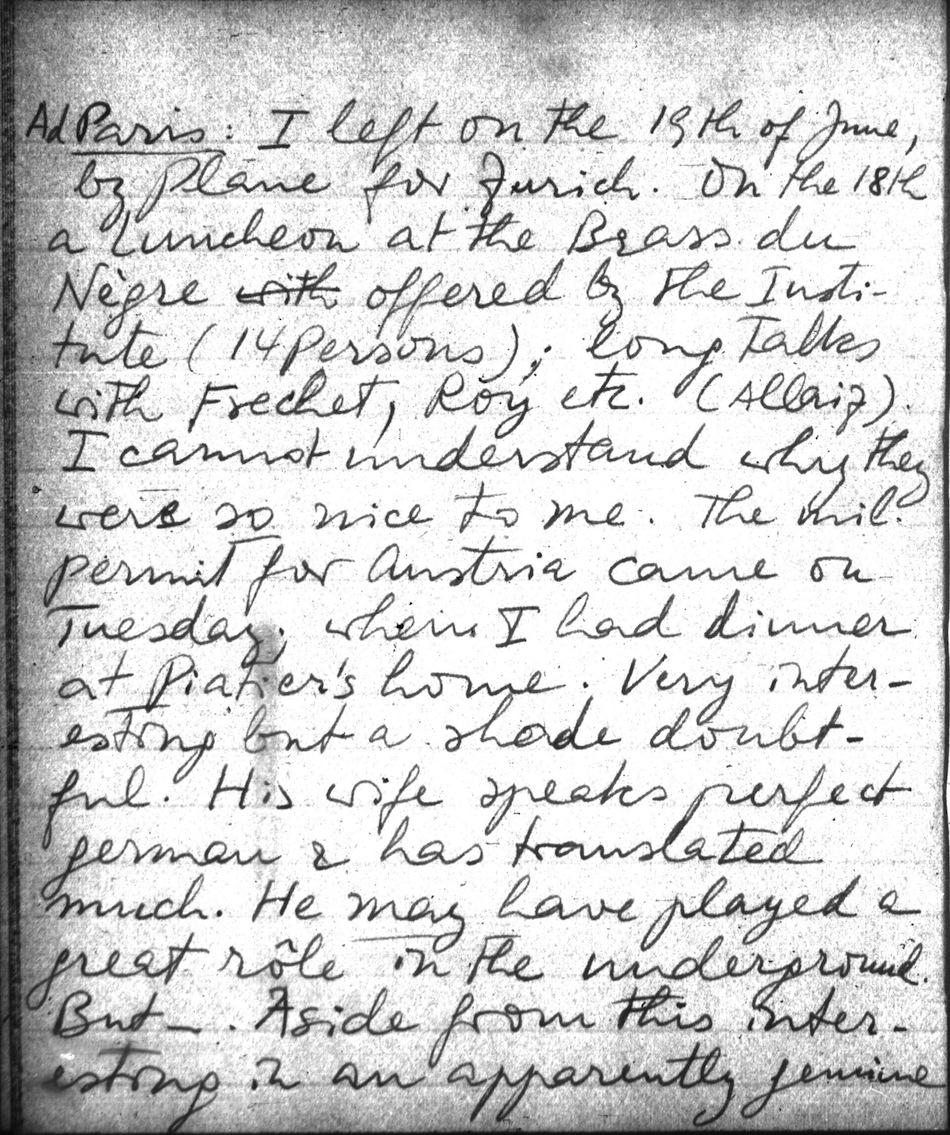 Ad Paris: I left on the 19th of June,
by plane for Zurich. On the 18th
a Luncheon at the Brass. du
Nègre with offered by the Insti-
tute (14 Persons); long Talks
with Frechet, Roy etc. (Allaiz).
I cannot understand why they
were so nice to me. The mil.
permit for Austria came on
Tuesday, when I had dinner
at Piatier's home. Very inter-
esting but a shade doubt-
ful. His wife speaks perfect
german & has translated
much. He may have played a
great rôle in the underground.
But — . Aside from this inter-
esting in an apparently genuine